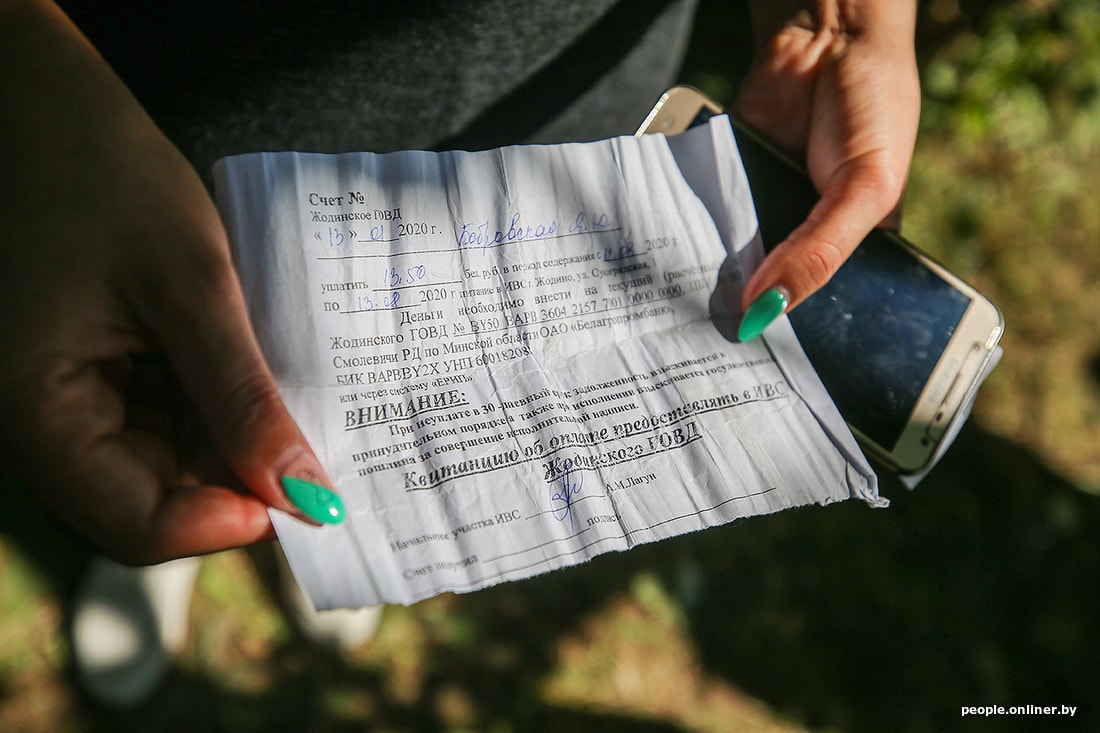 Счет №
Жодинское ГОВД
« 13 » 2020 г. Бобровская
уплатить 13.50 бел. руб. в период содержания с 2020 г
по 13.08 2020 г питание в ИВС г. Жодино, ул. Сухоградская, 1
Деньги необходимо внести на текущий (расчётный
Жодинского ГОВД № BY50 BAPB 3604 2157 7/01 0000 0000, ЦБУ
Смолевичи РД по Минской области ОАО «Белагропромбанк»,
БИК BAPBBY2X УНП 60018208
или через систему «ЕРИП»
ВНИМАНИЕ:
При неуплате в 30 -дневный срок задолженности, взыскивается в
принудительном порядке, а также при исполнении взыскивается государственная
пошлина за совершение исполнительной надписи.
Квитанцию об оплате предоставлять в ИВС
Жодинского ГОВД
Начальник участка ИВС А.М.Лагун
Счет получил
people.onliner.by